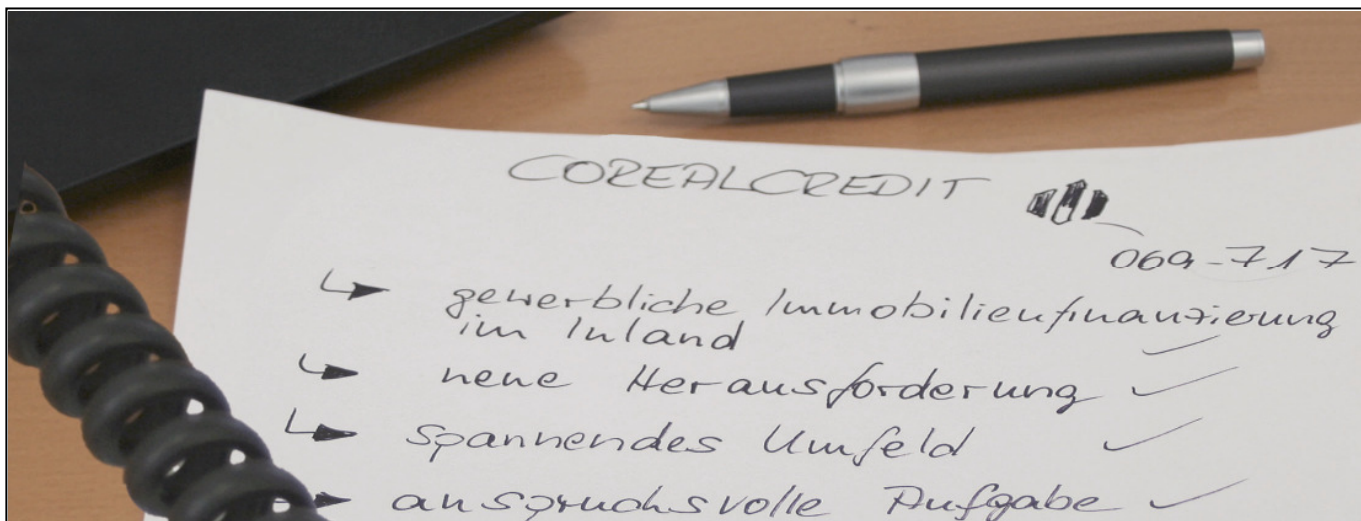 COREALCREDIT
069-717
gewerbliche Immobilienfinanzierung
im Inland
neue Herausforderung
spannendes Umfeld
anspruchsvolle Aufgabe